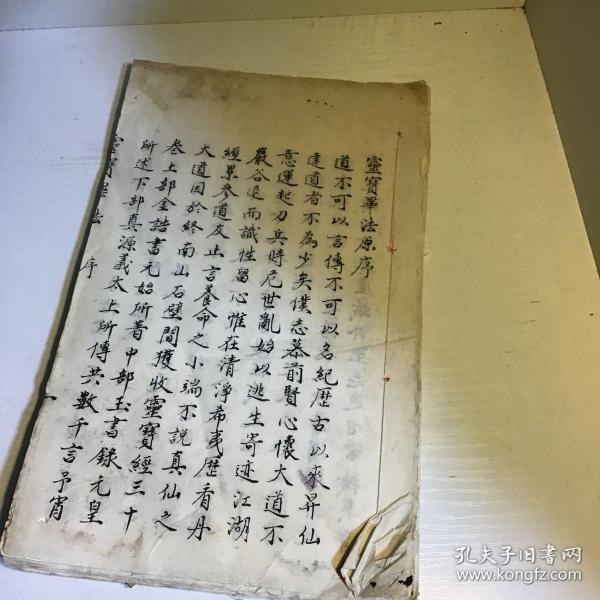 靈寶畢法原序
道不可以言傳不可以名紀歷古以來昇仙
達道者不為少矣僕志慕前賢心懷大道不
意運起刀兵時危世亂始以逃生寄迹江湖
巖谷退而識性留心惟在清淨希夷歷看丹
經累參道友止言養命之小端不說真仙之
大道因於終南山石壁間獲收靈寶經三十
卷上部金誥書元始所著中部玉書錄元皇
所述下部真源義太上所傳共數千言予宵
靈寶畢法 序
孔夫子旧书网
www.kongfz.com